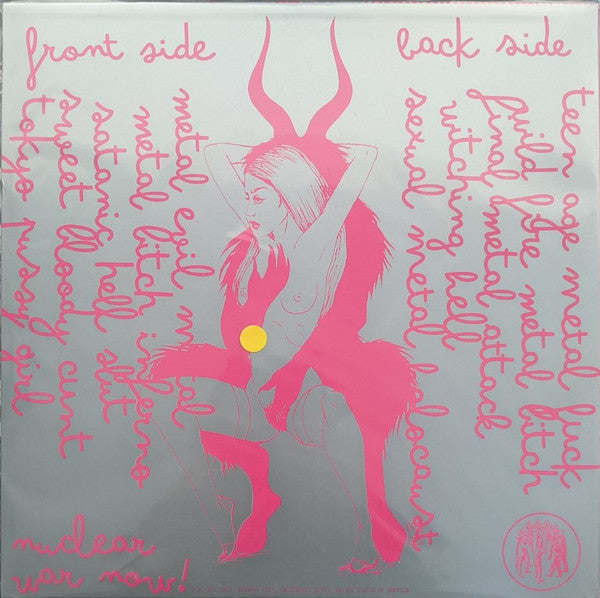 front side
metal evil metal
metal bitch inferno
satanic hell slut
sweet bloody cunt
tokyo pussy girl
back side
teen age metal fuck
wild fire metal bitch
final metal attack
witching hell
sexual metal holocaust
nuclear
war now!
UNITED STATES OF AMERICA